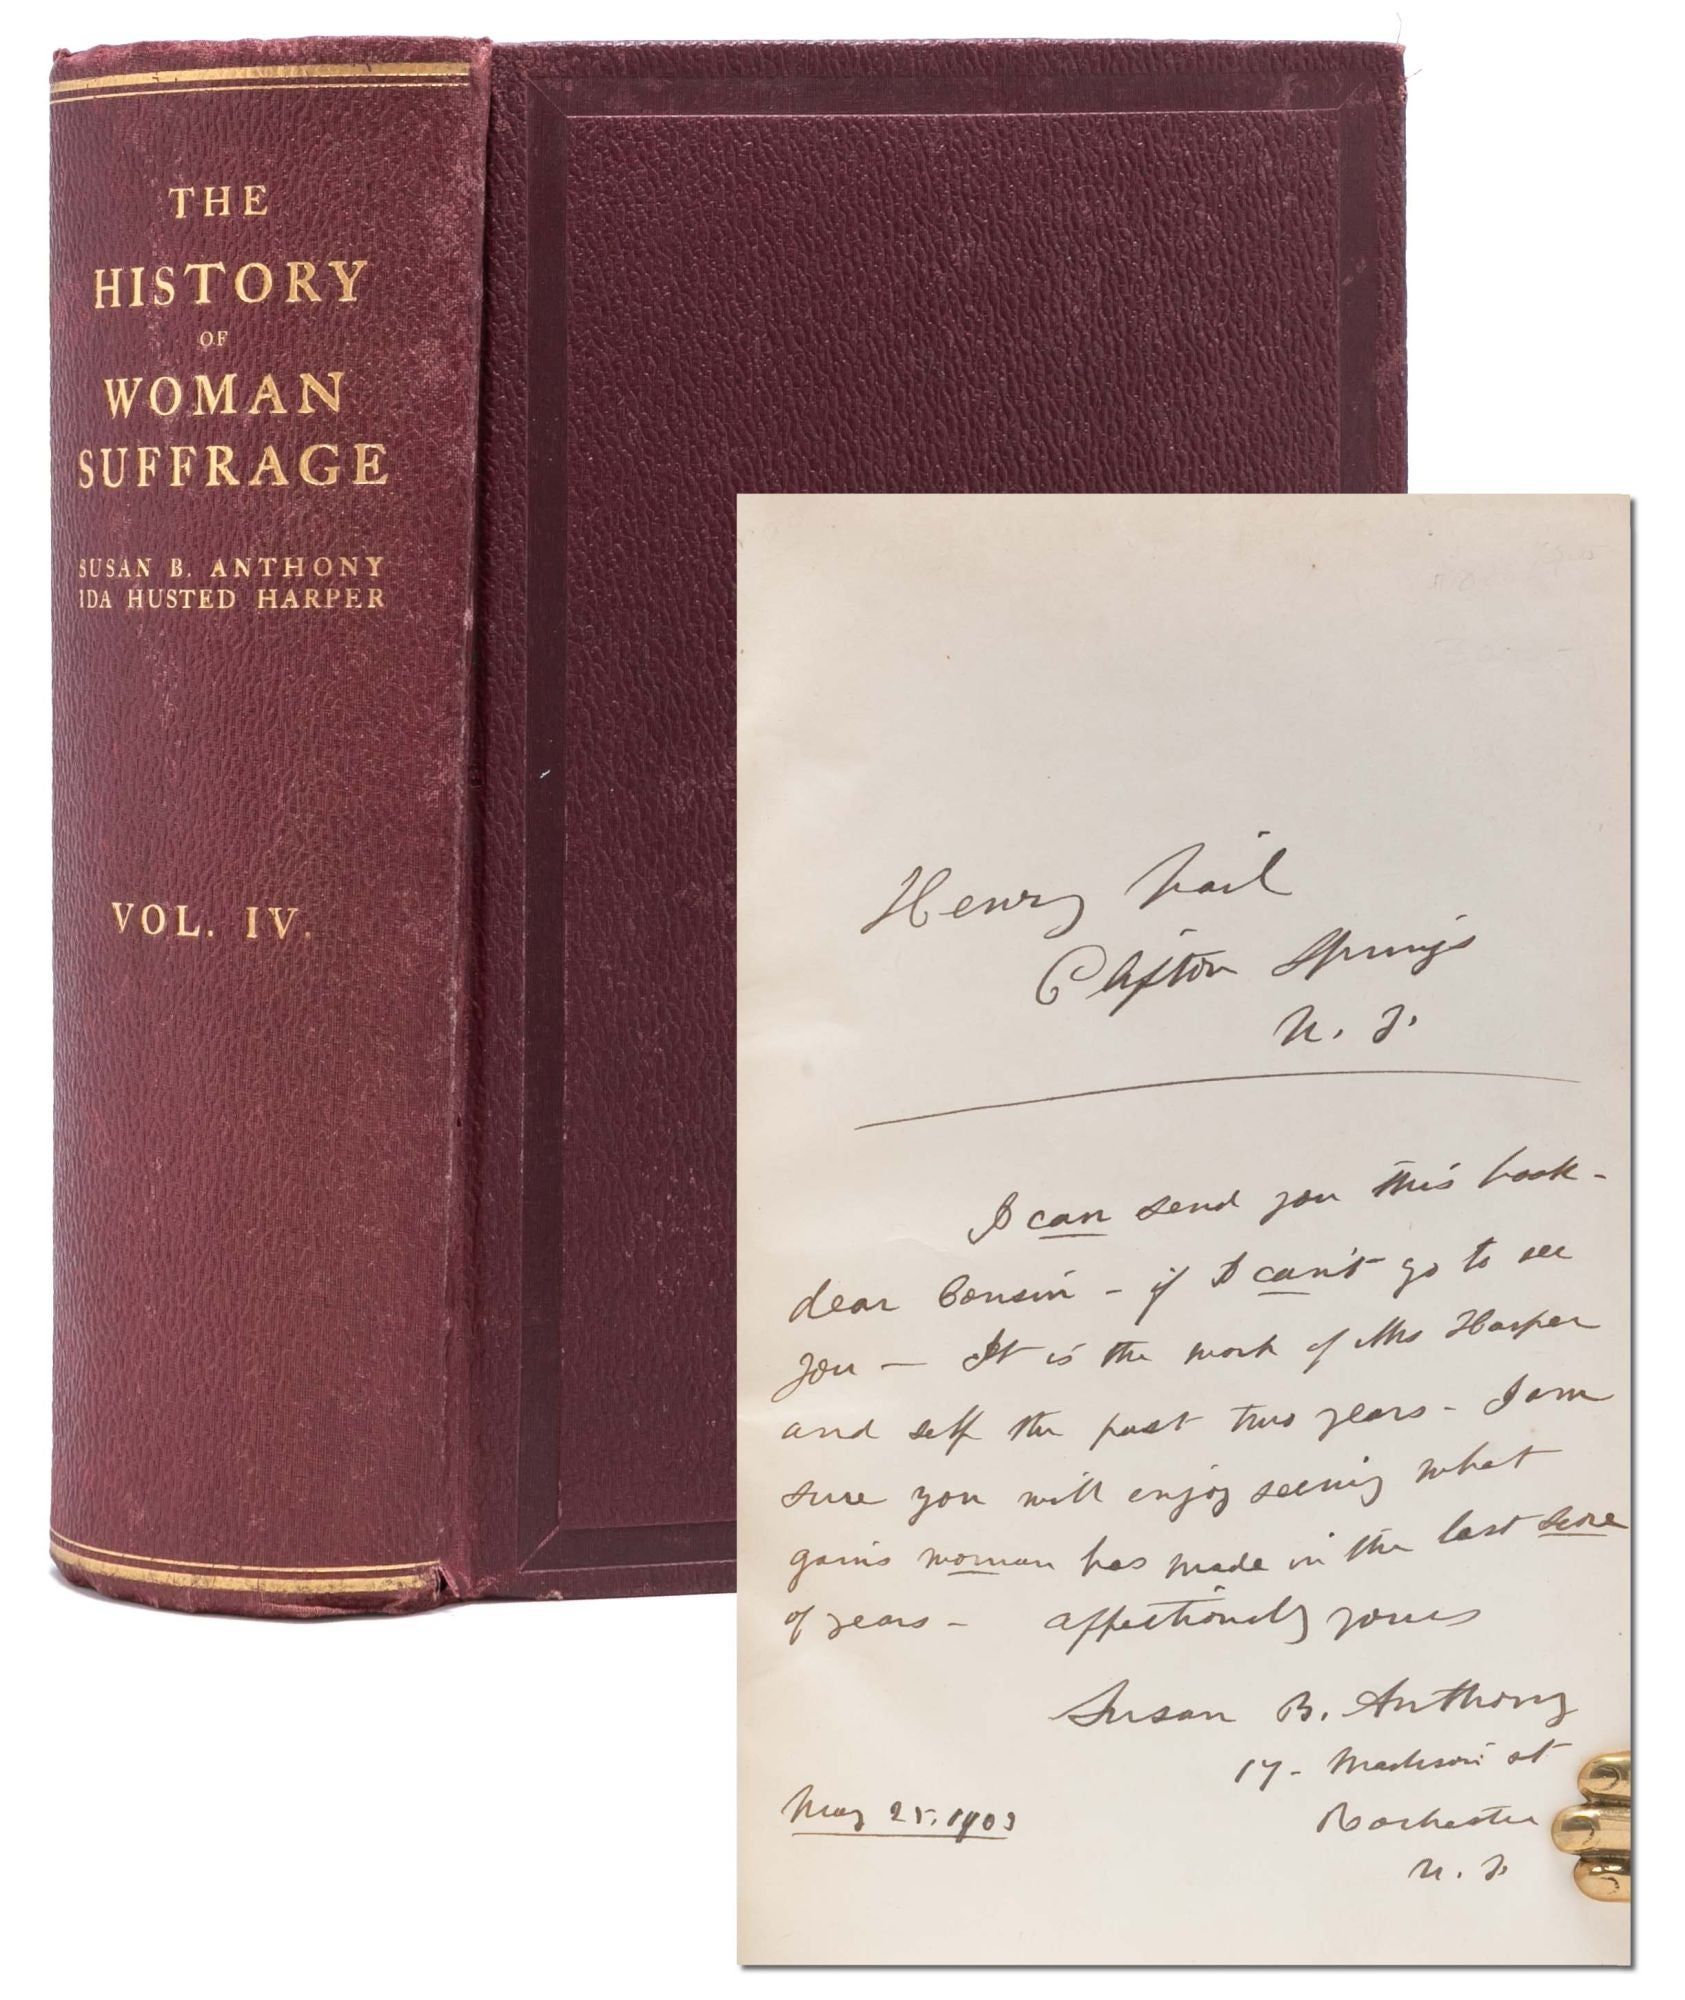 THE
HISTORY
OF
WOMAN
SUFFRAGE
SUSAN B. ANTHONY
IDA HUSTED HARPER
VOL. IV.
Henry Vail
Clifton Springs
N. Y.
I can send you this book -
dear Cousin - if I can't go to see
you - It is the work of Mrs Harper
and self the past two years - I am
sure you will enjoy seeing what
gains woman has made in the last score
of years - affectionately yours
Susan B. Anthony
17 - Madison st
May 25. 1903
Rochester
N. Y.